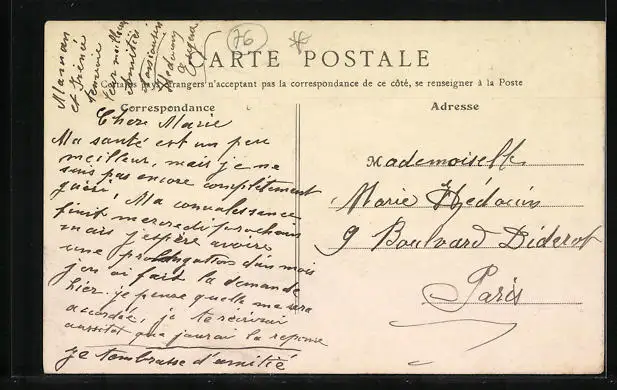 76
CARTE POSTALE
Certains pays étrangers n'acceptant pas la correspondance de ce côté, se renseigner à la Poste
Correspondance
Adresse
Maman
et Irénée
Chere Marie
Ma santé est un peu
meilleur, mais je ne
suis pas encore complètement
guéri. Ma convalessance
finit mercredi prochain
mais j'espère avoire
une prolongation d'un mois
j'en ai fait la demande
hier. je pense quelle me sera
accordée, je te récrirai
aussitot que jaurai la reponse
je tembrasse d'amitié
Mademoiselle
Marie Hédouin
9 Boulvard Diderot
Paris